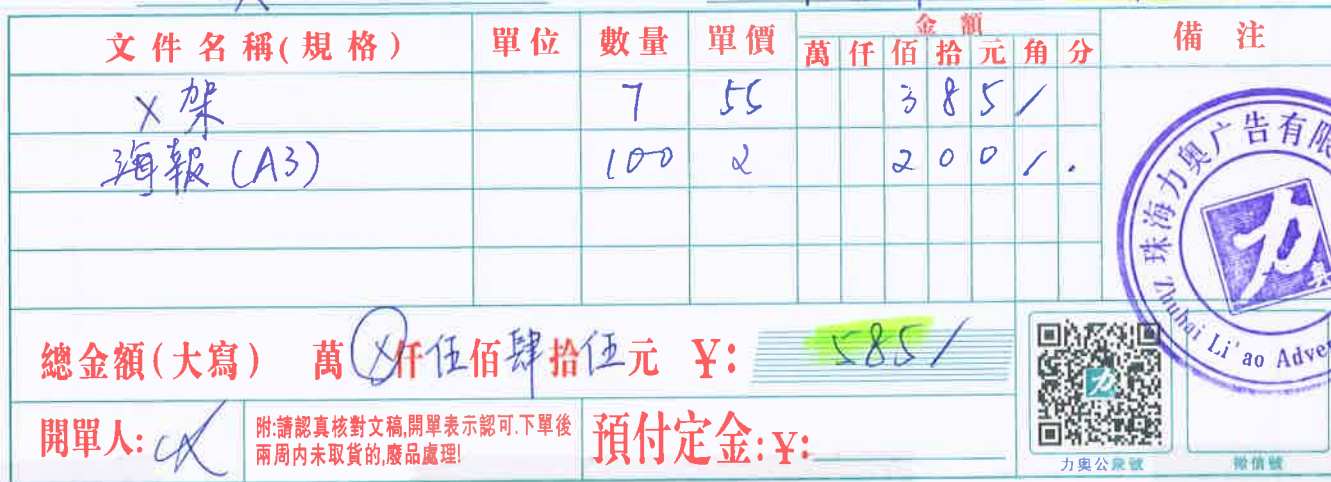 文件名稱(規格) 單位 數量 單價 金額 備注
萬 仟 佰 拾 元 角 分
X架 7 55 3 8 5 /
海報(A3) 100 2 2 0 0 / .
總金額(大寫) 萬 ⓧ仟伍佰肆拾伍元 ¥: 585/
開單人:
附:請認真核對文稿,開單表示認可.下單後
兩周内未取貨的,廢品處理!
預付定金:¥:
力奧公衆號 微信號
珠海力奥广告有限
Zhuhai Li'ao Adver
力
奥